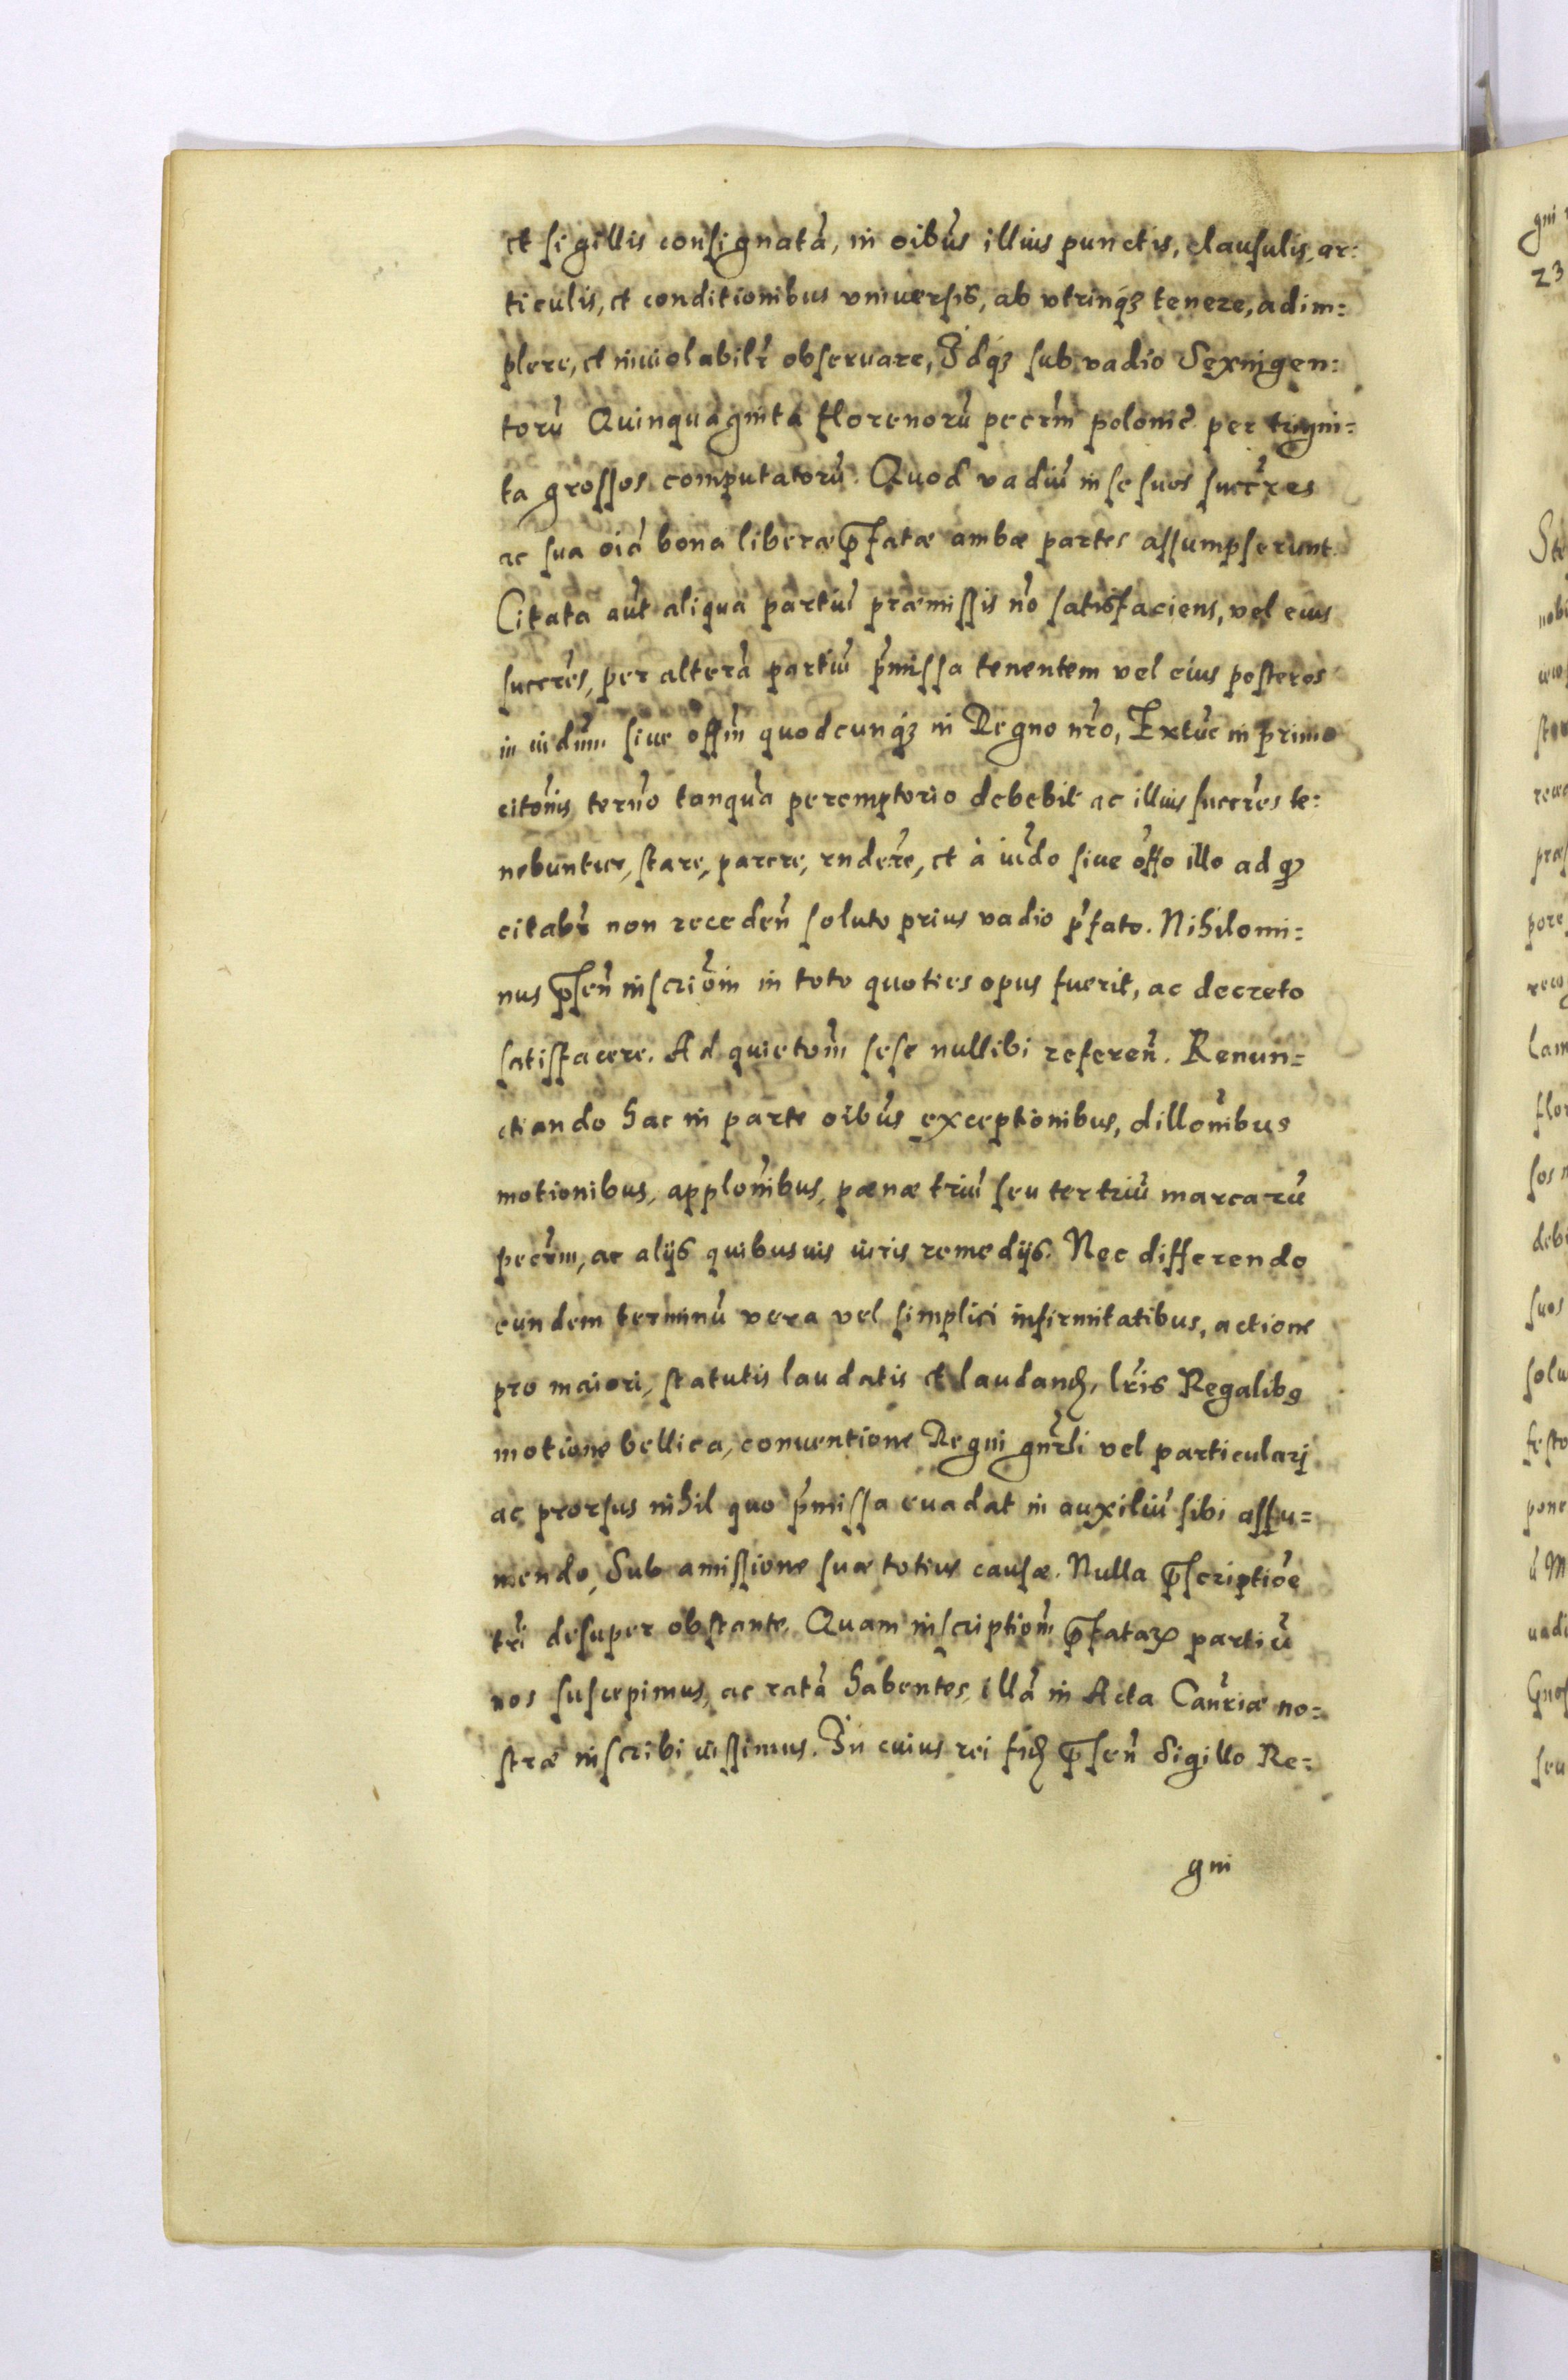 et sigillis consignatã, in oibus illius punctis, clausulis, ar:
ticulis, et conditionibus vniuersis, ab vtrinqꝫ tenere, adim=
plere, et inuiolabilr obseruare, Idqꝫ sub vadio Sexingen:
torũ Quinquaginta florenorũ pecrm polonic per trigni=
ta grossos computatorũ. Quod vadiũ in se suos succres
ac sua oia bona libera p̄fatæ ambæ partes assumpserunt.
Citata aut aliqua partiũ præmissis no satisfaciens, vel eius
succres, per alterã partiũ pmissa tenentem vel eius posteros
in iudm siue offm quodcunqꝫ in Regno nro, Extũc in primo
citonis terno tanquã peremptorio debebit ac illius succres te:
nebuntur, stare, parere, rndere, et à iudo siue offo illo ad qꝫ
citabr non receden soluto prius vadio pfato. Nihilomi=
nus p̄sen inscriom in toto quoties opus fuerit, ac decreto
satisfacere. Ad quietom sese nullibi referen. Renun=
ctiando hac in parte oibus exceptionibus, dillonibus
motionibus, applonibus, pænæ triũ seu tertriũ marcarũ
pecrm, ac alijs quibusuis iuris remedijs. Nec differendo
eundem terminũ vera vel simplici infirmitatibus, actione
pro maiori, statutis laudatis et laudand, lris Regalibꝫ
motione bellica, conuentione Regni gnrli vel particulari
ac prorsus nihil quo pmissa euadat in auxiliũ sibi assu=
mendo, Sub amissione suæ totius causæ. Nulla p̄scriptioe
tri desuper obstante. Quam inscriptiom p̄fataꝝ partiũ
nos suscepimus, ac ratã habentes, illã in Acta Canriæ no=
stræ inscribi iussimus. In cuius rei fid p̄sen Sigillo Re=
gni